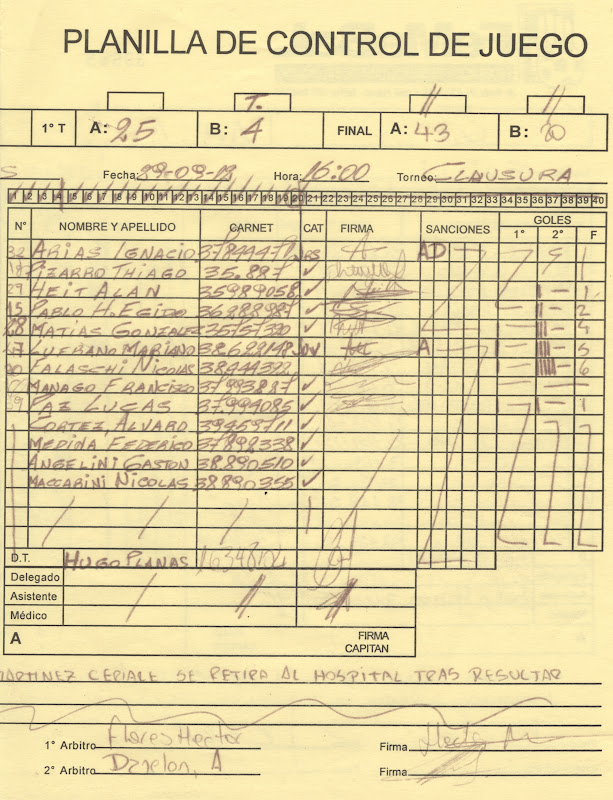 PLANILLA DE CONTROL DE JUEGO
T. // //
1° T A: 25 B: 4 FINAL A: 43 B: 20
S Fecha: 29-09-12 Hora: 16:00 Torneo: CLAUSURA
1 2 3 4 5 6 7 8 9 10 11 12 13 14 15 16 17 18 19 20 21 22 23 24 25 26 27 28 29 30 31 32 33 34 35 36 37 38 39 40
N° NOMBRE Y APELLIDO CARNET CAT FIRMA SANCIONES GOLES
1° 2° F
ARIAS IGNACIO AD
PIZARRO THIAGO 35.887 ✓
29 HEIT ALAN 35989058 ✓ 1
15 PABLO H. EGIDO 36288987 ✓ 2
28 MATIAS GONZALEZ 35757320 ✓ 4
LUFRANO MARIANO JUV A 5
FALASCHI NICOLAS 38444322 ✓ 6
MANAGO FRANCIZCO 37993887 ✓
PAZ LUCAS 37.994085 ✓ 1
CORTEZ, ALVARO 39459711 ✓
MEDINA FEDERICO 37898338 ✓
ANGELINI GASTON 38890510 ✓
MACCARINI NICOLAS 38890355 ✓
D.T. HUGO PLANAS
Delegado
Asistente
Médico
A FIRMA
CAPITAN
MARTINEZ CERIALE SE RETIRA AL HOSPITAL TRAS RESULTAR
1° Arbitro Flores Hector Firma
2° Arbitro Firma